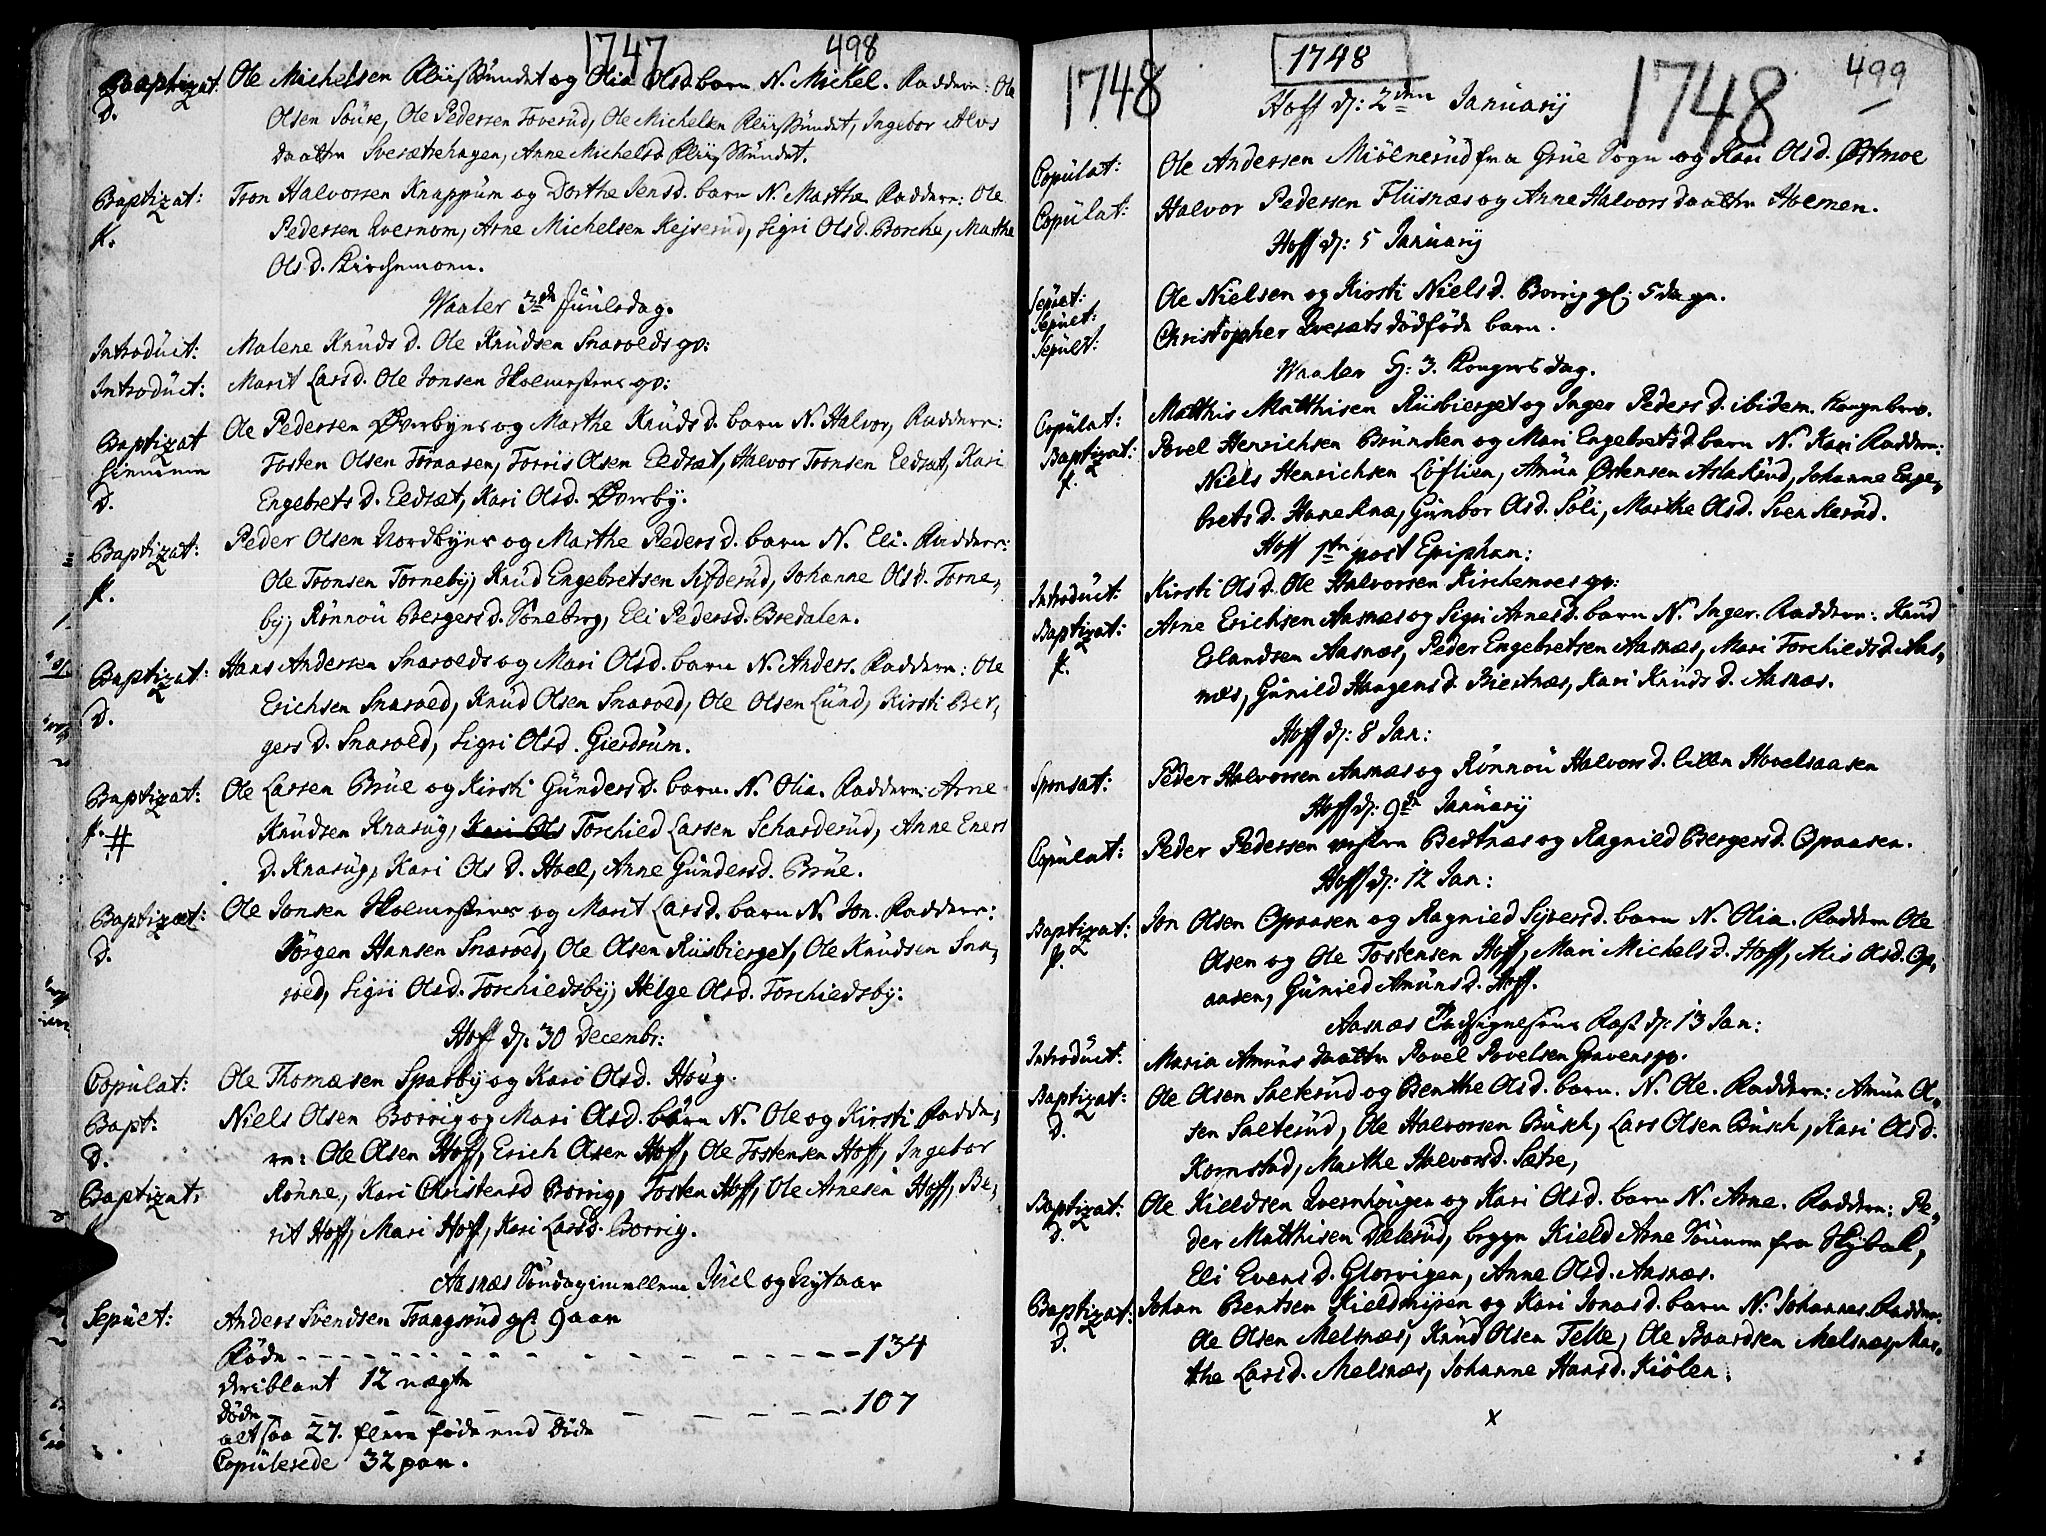 1747 498
Baptizat Ole Michelsen og Olia Olsd. barn N. Mickel. Faddere: Ole
D. Olsen Soure, Ole Pedersen Foverud, Ole Michelsen, Ingebor Alvs
daatter Svesætrehagen, Anne Michelsd.
Baptizat: Tron Halvorsen Knappum og Dorthe Jensd. barn N. Marthe Faddere: Ole
f. Pedersen Qvernom, Arne Michelsen Kejserud, Sigri Olsd. Borche, Marthe
Olsd. Kirchemoen.
Waaler 3de Juulsdag.
Introduct: Malene Knuds D. Ole Knudsen Snarolds qv:
Introduct: Marit Larsd. Ole Jonsen qv:
Baptizat Ole Pedersen Øverbyes og Marthe Knuds D. barn N. Halvor, Faddere:
Tosten Olsen Foraasen, Torris Olsen Eldsæt, Halvor Tronsen Eldsæt, Kari
D. Engebrets D. Eldsæt, Kari Olsd. Øverby.
Baptizat: Peder Olsen Nordbyes og Marthe Peders D. barn N. Eli. Faddere:
Ole Tronsen Torneby, Knud Engebretsen, Johanne Olsd. Torne,
f. by, Rønnou Bergers D. Soneberg, Eli Pedersd. Bredalen.
Baptizat: Hans Andersen Snarolds og Mari Olsd. barn N. Anders. Faddere: Ole
Erichsen Snarold, Knud Olsen Snarold, Ole Olsen Lund, Kirsti Ber,
D. gers D. Snarold, Sigri Olsd. Gierdrum.
Baptizat: Ole Larsen Brue og Kirsti Gunders D. barn. N. Olia. Faddere: Arne
f. # Knudsen Knasug, Kari Ols Torchield Larsen Scharderud, Anne Eners
D. Knasug, Kari Ols D. Hoel, Anne Gundersd. Brue.
Baptizat: Ole Jonsen og Marit Larsd. barn N. Jon. Faddere:
D. Jørgen Hansen Snarold, Ole Olsen Riisbierget, Ole Knudsen Sna,
rold, Sigri Olsd. Torchieldsby, Helge Olsd. Torchieldsby.
Hoff d: 30 Decembr:
Copulat: Ole Thomæsen Sparby og Kari Olsd. Houg.
Bapt: Niels Olsen Borrig og Mari Olsd. børn N. Ole og Kirsti Fadde,
D. re: Ole Olsen Hoff, Erich Olsen Hoff, Ole Tostensen Hoff, Ingebor
Baptizat: Rønne, Kari Christensd Borrig, Tosten Hoff, Ole Arnesen Hoff, Be,
f. rit Hoff, Mari Hoff, Kari Larsd. Borrig.
Aasnæs Søndag imellem Juel og Nytaar
Sepult: Anders Svendsen Trangsrud gl: 9 aar
Fødte - - - - - - - - - 134
deriblant 12 uægte
Døde - - - - - - - - - 107
altsaa 27. flere fødte end døde
Copulerede 32 par.
1748 1748 1748 499
Hoff d: 2den January
Copulat: Ole Andersen Miølnerud fra Grue Sogn og Kari Olsd. Østmoe
Copulat: Halvor Pedersen Fliisnæs og Anne Halvors daatter Holmen.
Hoff d: 5 January
Sepult: Ole Nielsen og Kirsti Niels D. Borrig gl: 5 dage.
Sepult:
Sepult: Christopher Qvesæts dødfødte barn.
Waaler H: 3. Kongers dag.
Copulat: Matthis Matthisen Riisbierget og Inger Peders D. ibidem.
Baptizat: Povel Henrichsen Brunsken og Mari Engebretsd. barn N. Kari Faddere:
f. Niels Henrichsen Løftlien, Amun Østensen Aslaksrud, Johanne Enge,
brets D. Hanekne, Gunbor Olsd. Soli, Marthe Olsd. Svenkerud.
Hoff 1ste post Epiphan:
Introduct: Kirsti Olsd. Ole Halvorsen Kirchemoes qv:
Baptizat: Arne Erichsen Aasnæs og Sigri Arnesd. barn N. Inger. Faddere: Knud
f. Erlandsen Aasnæs, Peder Engebretsen Aasnæs, Mari Torchields D. Aas,
næs, Gunild Haagens D. Biertnæs, Kari Knuds D. Aasnæs.
Hoff d: 8 Jan:
Sponsat: Peder Halvorsen Aasnæs og Rønnou Halvors D. lille Hovelsaasen
Hoff d: 9de January
Copulat: Peder Pedersen Bertnæs og Ragnild Bergersd. Opaasen.
Hoff d: 12 Jan:
Baptizat: Jon Olsen Opaasen og Ragnild Siversd. barn N. Olia. Faddere Ole
f. Olsen og Ole Tostensen Hoff, Mari Michels D. Hoff, Mis Olsd. Op,
aasen, Gunild Amuns D. Hoff.
Aasnæs d: 13 Jan:
Introduct: Maria Amuns daatter Povel Povelsen Gravens qv.
Baptizat: Ole Olsen Sæterud og Benthe Olsd. barn. N. Ole. Faddere: Amun Ol,
D. sen Sæterud, Ole Halvorsen Busch, Lars Olsen Busch, Kari Olsd.
Kornstad, Marthe Halvorsd. Sætre,
Baptizat: Ole Kieldsen Qvernhougen og Kari Olsd. barn N. Arne. Faddere: Pe,
D. der Matthisen Dælerud, Kield Arne fra,
Eli Evens D. Glorvigen, Anne Olsd. Aasnæs.
Baptizat: Johan Bentsen og Kari Jonasd. barn N: Johannes. Faddere:
D. Ole Olsen Melsnæs, Knud Olsen Telle, Ole Baardsen Melsnæs, Mar,
the Larsd. Melsnæs, Johanne Hansd. Kiølen.
x